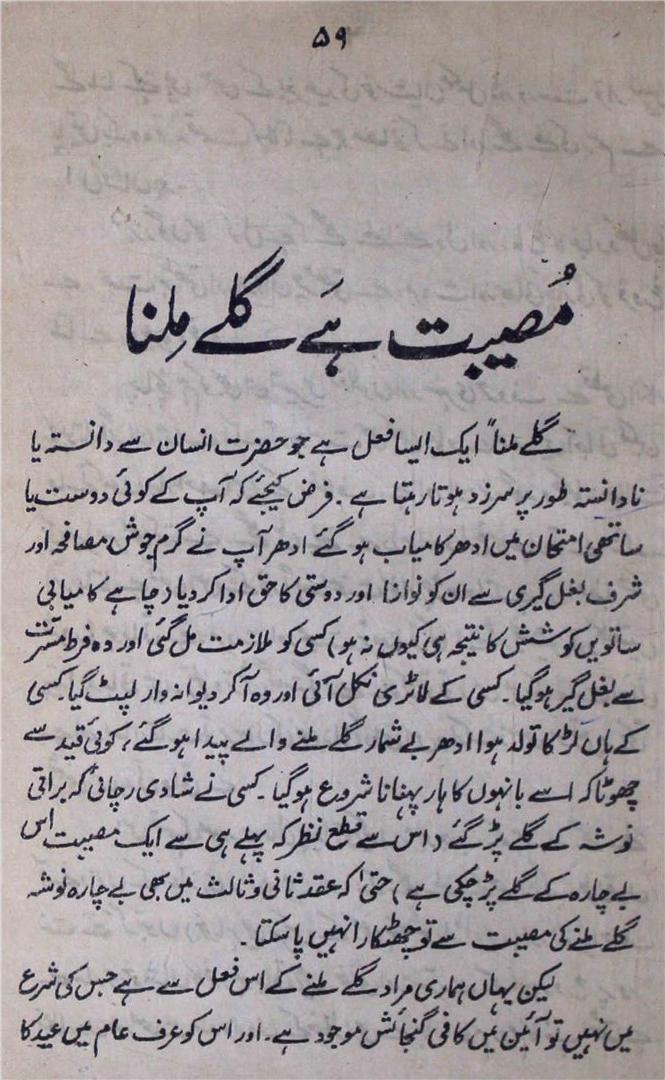 ۵۹
مُصیبت ہَے گلے مِلنا
گلے ملنا" ایک ایسا فعل ہے جو حضرت انسان سے دانستہ یا
نادانستہ طور پر سرزد ہوتا رہتا ہے۔ فرض کیجئے کہ آپ کے کوئی دوست یا
ساتھی امتحان میں ادھر کامیاب ہو گئے ادھر آپ نے گرم جوش مصافحہ اور
شرف بغل گیری سے ان کو نوازا اور دوستی کا حق ادا کر دیا (چاہے کامیابی
ساتویں کوشش کا نتیجہ ہی کیوں نہ ہو) کسی کو ملازمت مل گئی اور وہ فرط مسّرت
سے بغل گیر ہو گیا۔ کسی کے لاٹری نکل آئی اور وہ آکر دیوانہ وار لپٹ گیا۔ کسی
کے ہاں لڑکا تولد ہوا ادھر بے شمار گلے ملنے والے پیدا ہو گئے، کوئی قید سے
چھوٹا کہ اسے بانہوں کا ہار پہنانا شروع ہو گیا۔ کسی نے شادی رچائی کہ براتی
نوشہ کے گلے پڑ گئے (اس سے قطع نظر کہ پہلے ہی سے ایک مصیبت اس
بے چارہ کے گلے پڑ چکی ہے) حتیٰ کہ عقد ثانی و ثالث میں بھی بے چارہ نوشہ
گلے ملنے کی مصیبت سے تو چھٹکارا نہیں پا سکتا۔
لیکن یہاں ہماری مراد گلے ملنے کے اس فعل سے ہے جس کی شرع
میں نہیں تو آئین میں کافی گنجائش موجود ہے۔ اور اس کو عرف عام میں عید کا